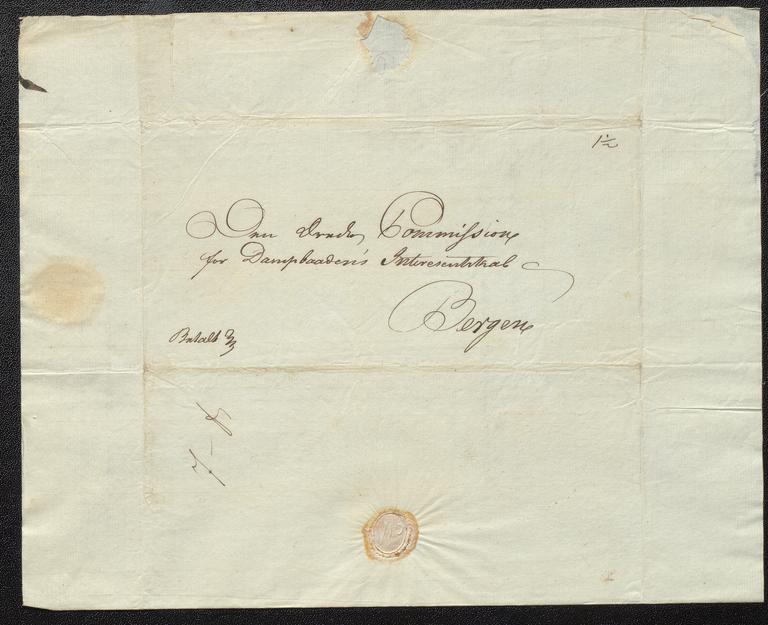 1½
Den ærede Commission
for Dampbaadens Interesentskab
Bergen
Betalt